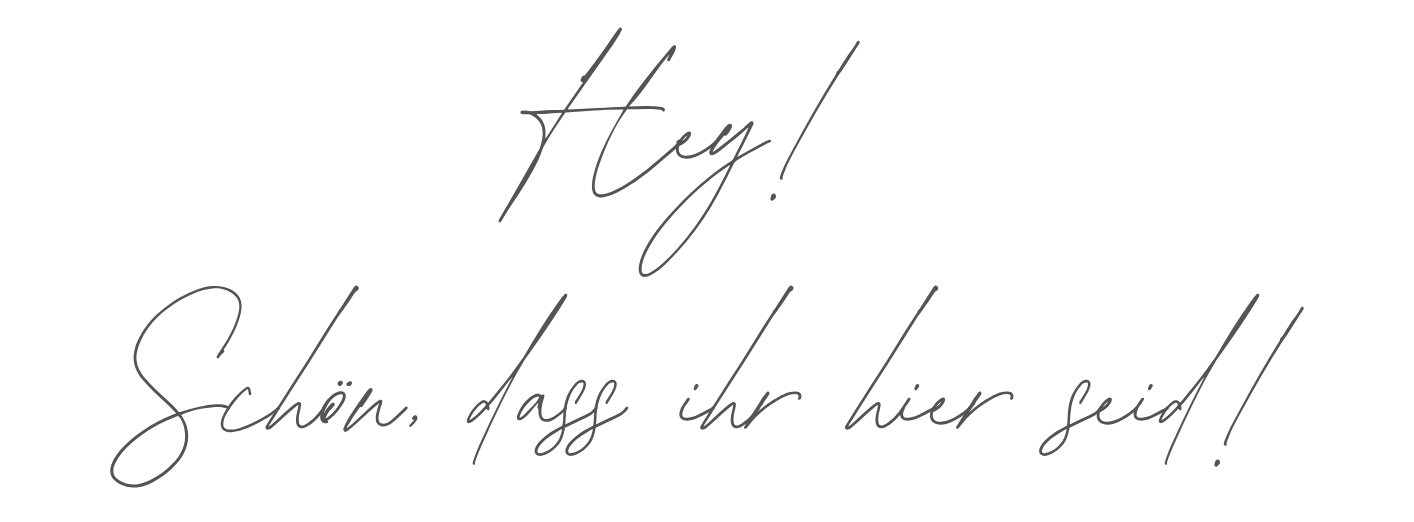 Hey!
Schön, dass ihr hier seid!